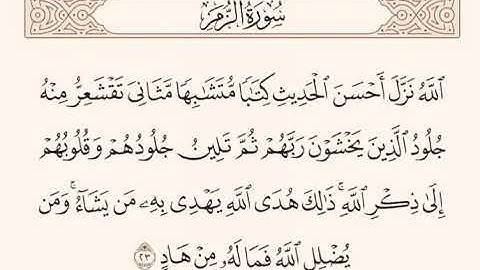 سُورَةُ الزُّمَرِ
اللَّهُ نَزَّلَ أَحْسَنَ الْحَدِيثِ كِتَابًا مُّتَشَابِهًا مَّثَانِيَ تَقْشَعِرُّ مِنْهُ
جُلُودُ الَّذِينَ يَخْشَوْنَ رَبَّهُمْ ثُمَّ تَلِينُ جُلُودُهُمْ وَقُلُوبُهُمْ
إِلَىٰ ذِكْرِ اللَّهِ ۚ ذَٰلِكَ هُدَى اللَّهِ يَهْدِي بِهِ مَن يَشَاءُ ۚ وَمَن
يُضْلِلِ اللَّهُ فَمَا لَهُ مِنْ هَادٍ ٢٣